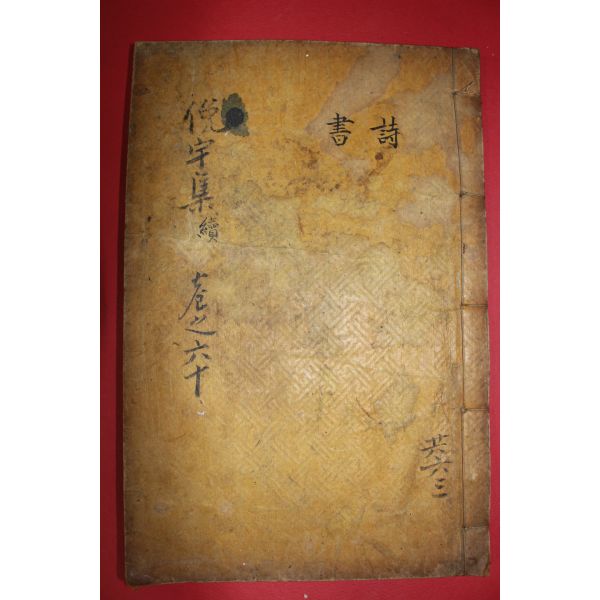 詩
書
共六三
俛宇集續 卷之六十